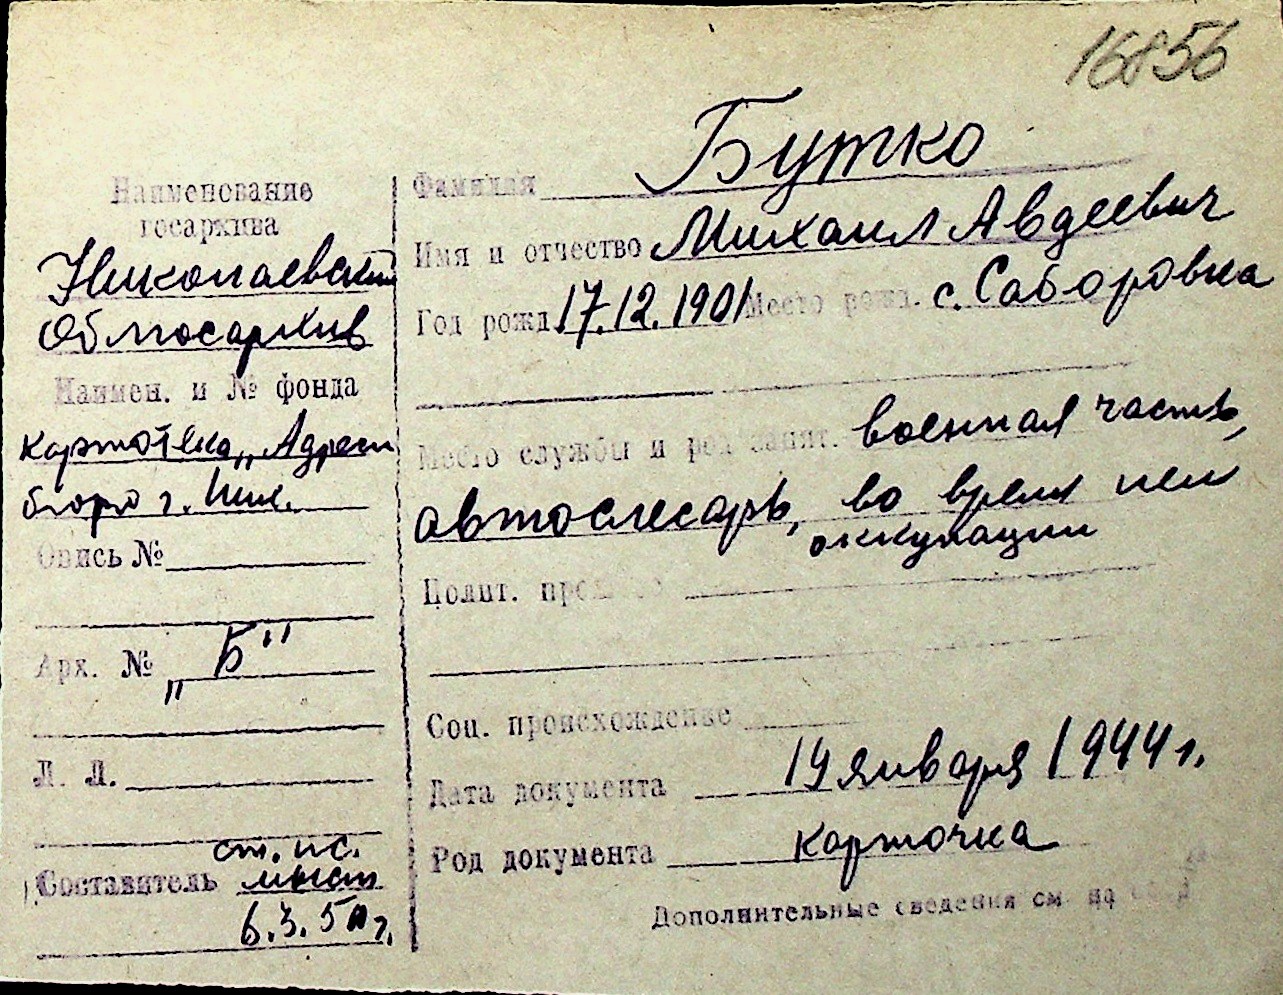 16856
Наименование
госархива
Николаевский
Облгосархив
Наимен. и № фонда
картотека „Адресн
бюро г. Ник.
Опись №
Арх. № „Б"
Л. Л.
ст. нс.
Составитель
6.3.50 г.
Фамилия Бутко
Имя и отчество Михаил Авдеевич
Год рожд. 17.12.1901 Место рожд. с. Саборовка
Место службы и род занят. военная часть,
автослесарь, во время нем
оккупации
Полит. прошлое
Соц. происхождение
Дата документа 14 января 1944 г.
Род документа карточка
Дополнительные сведения см. на